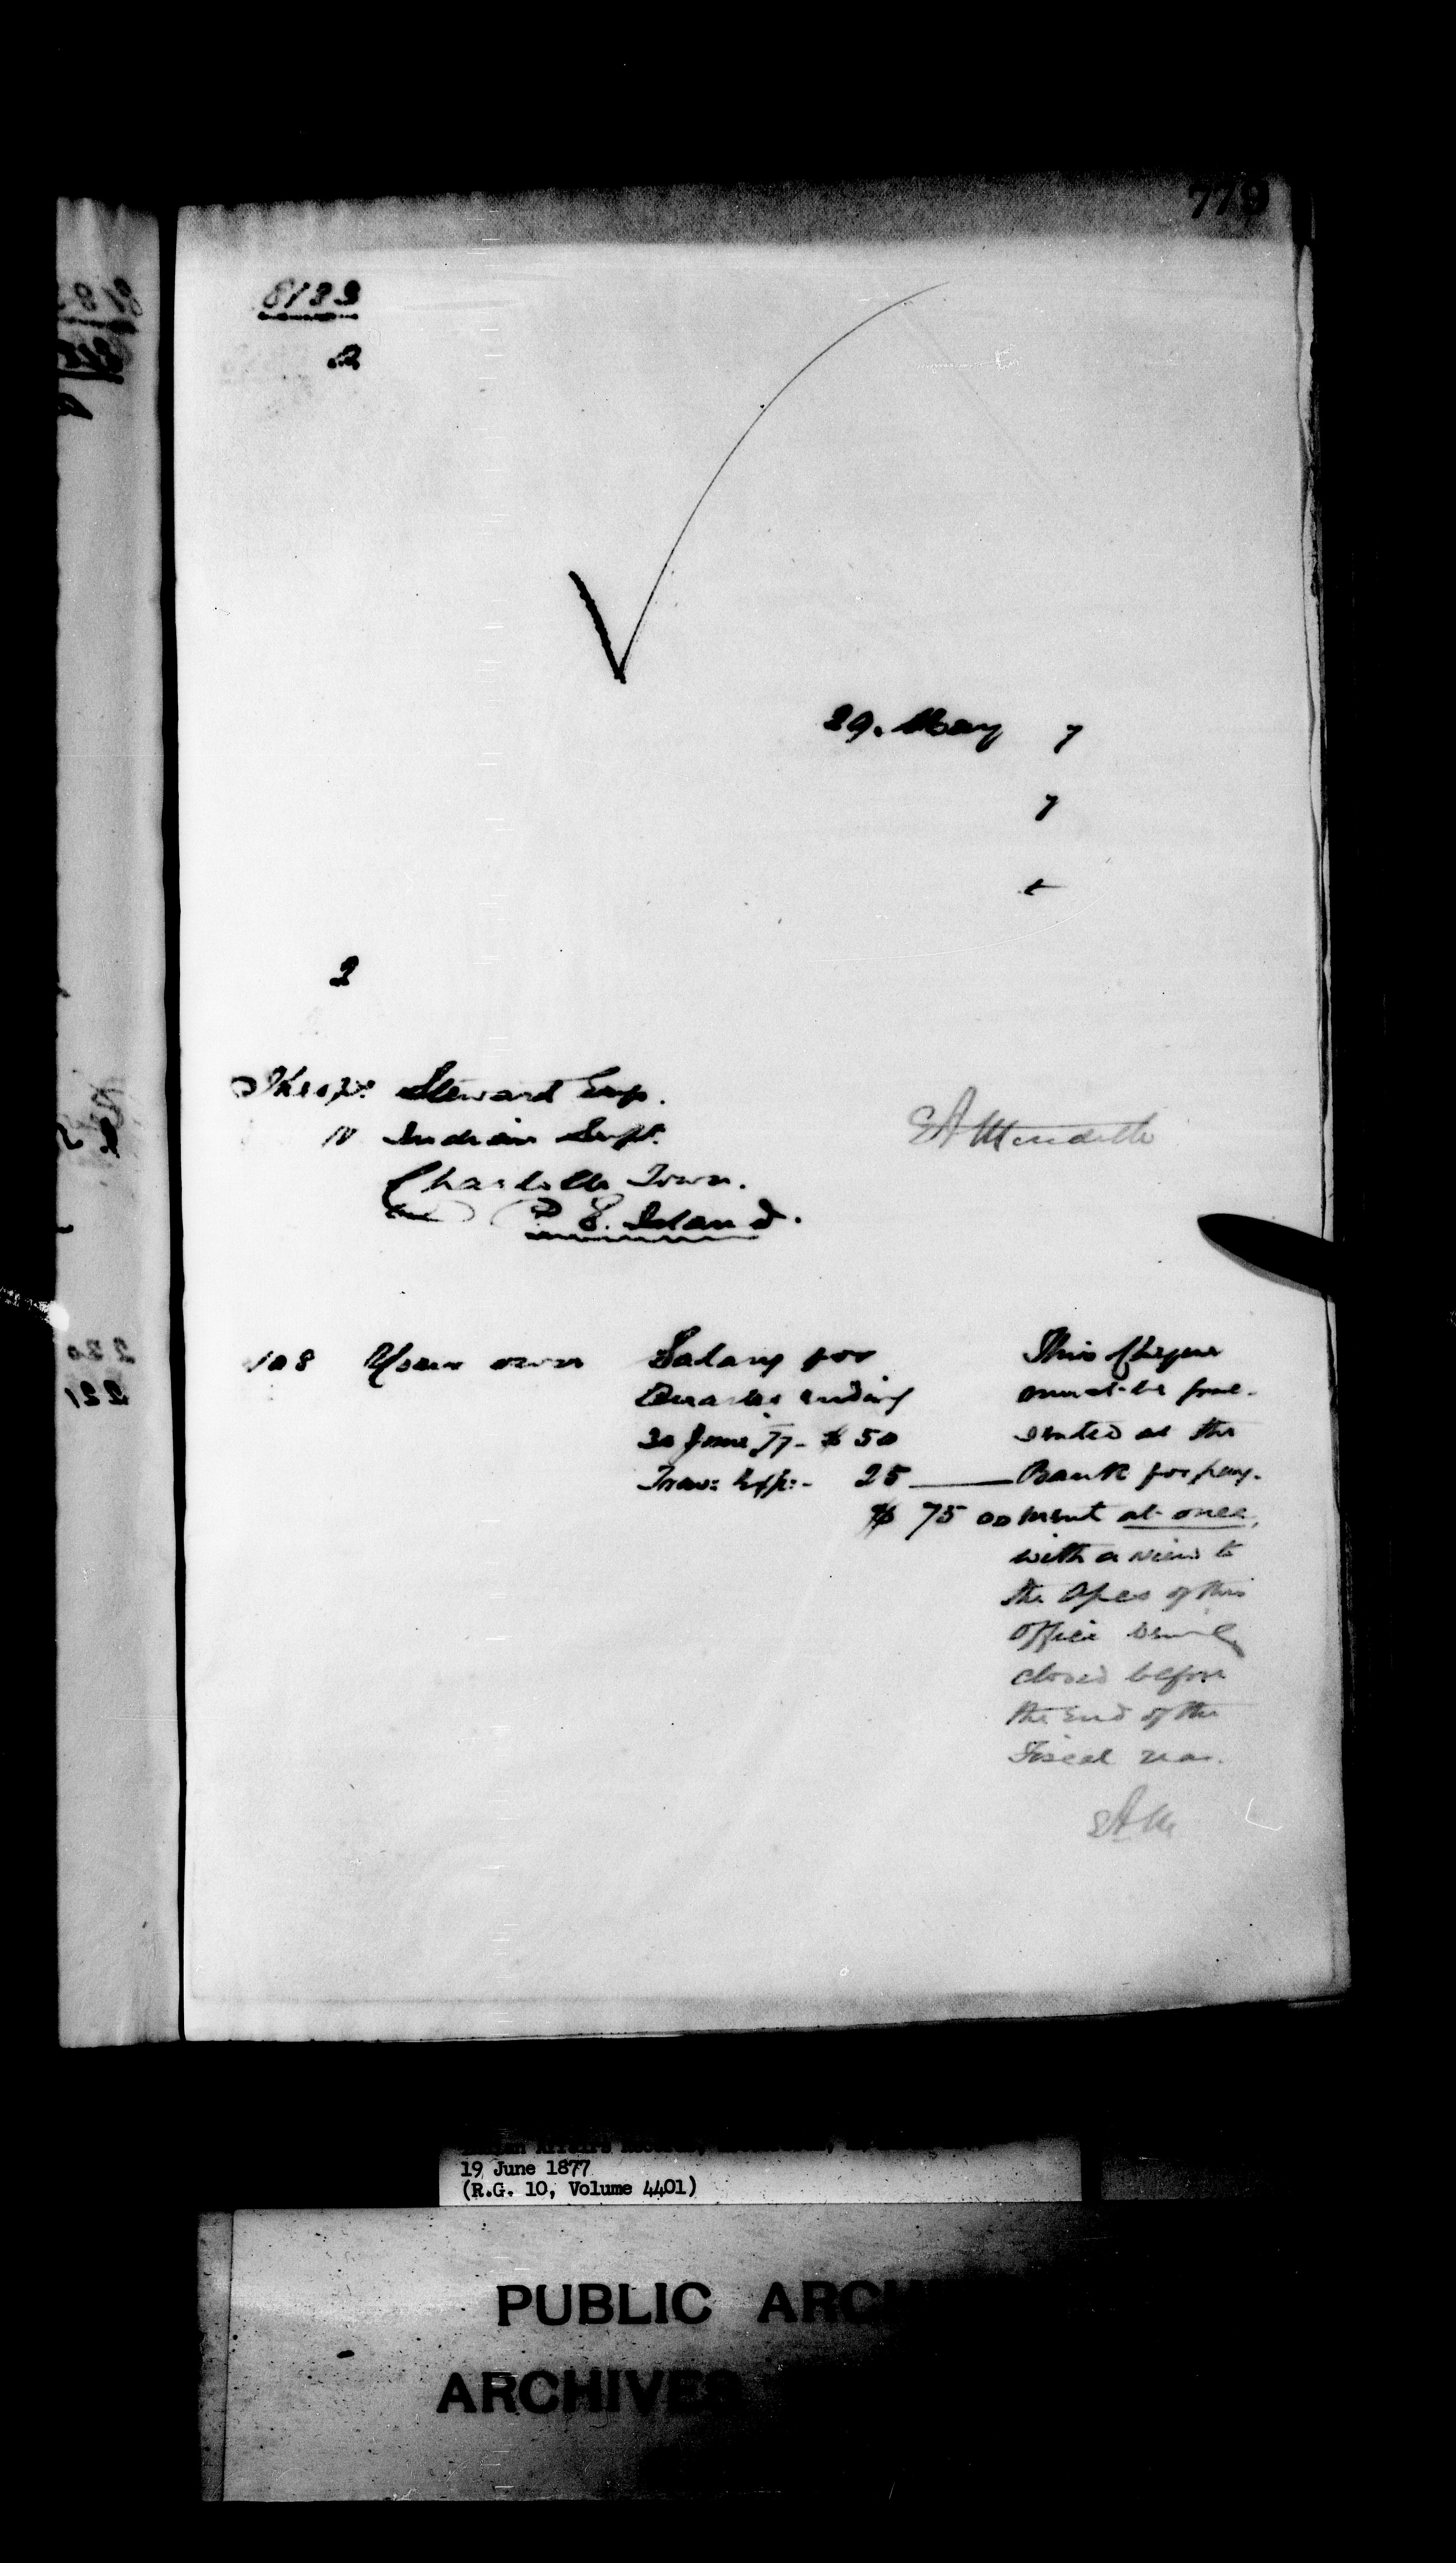 779
8133
29. May 7
7
t
2
Theop: Steward Esq.
Indian Supt.
Charlotte Town.
P. E. Island.
EA Meredith
108 Your own
Salary for
Quarter ending
30 June, 77 - $ 50
Trav: Exp: - 25
$ 75 00
This Cheque
must be pre-
sented at the
Bank for pay-
ment at once,
with a view to
the Apcs of this
Office being
closed before
the end of the
Fiscal year.
EAM
19 June 1877
(R.G. 10, Volume 4401)
PUBLIC ARCH
ARCHIVES